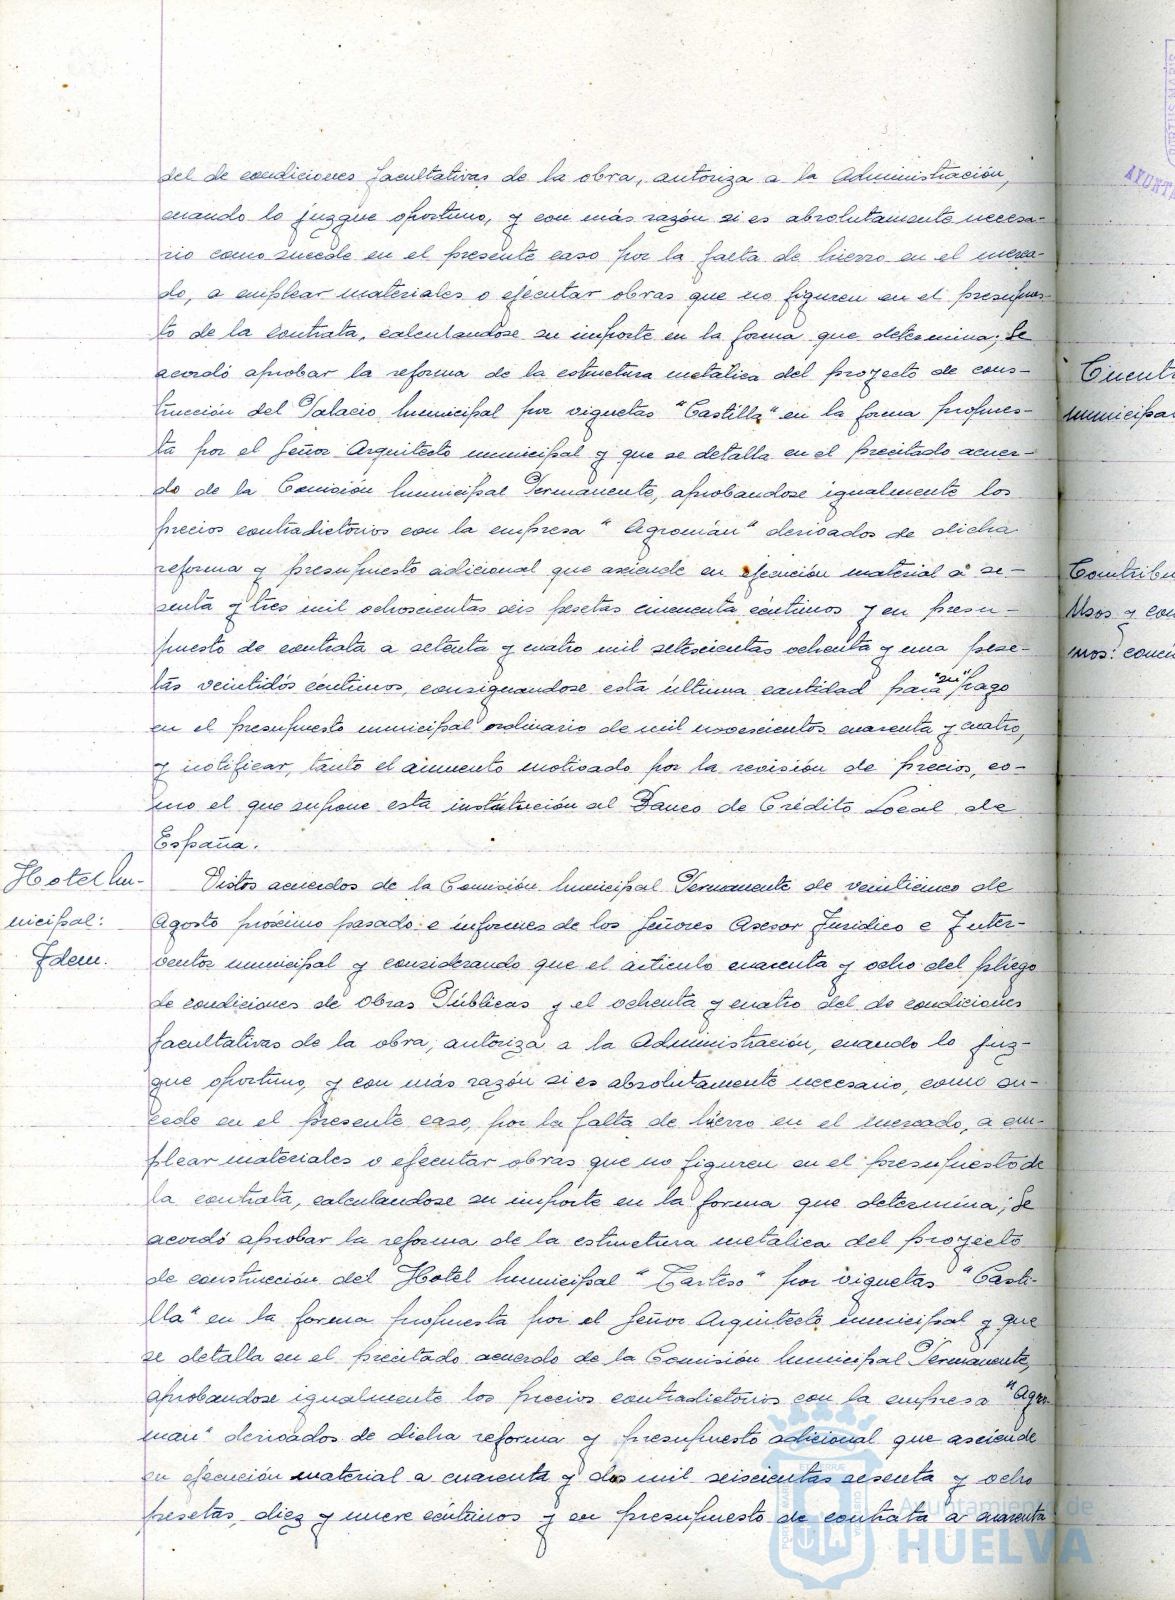 del de condiciones facultativas de la obra, autoriza a la Administración,
cuando lo juzgue oportuno, y con más razón si es absolutamente necesa-
rio como sucede en el presente caso por la falta de hierro en el merca-
do, a emplear materiales o ejecutar obras que no figuren en el presupues-
to de la contrata, calculandose su importe en la forma que determina; Se
acordó aprobar la reforma de la estructura metalica del proyecto de cons-
trucción del Palacio Municipal por viguetas "Castilla" en la forma propues-
ta por el Señor Arquitecto municipal y que se detalla en el precitado acuer-
do de la Comisión Municipal Permanente, aprobandose igualmente los
precios contradictorios con la empresa "Agromán" derivados de dicha
reforma y presupuesto adicional que asciende en ejecución material a se-
senta y tres mil ochoscientas seis pesetas cincuenta céntimos y en presu-
puesto de contrata a setenta y cuatro mil setescientas ochenta y una pese-
tas veintidós céntimos, consignandose esta última cantidad para "su" pago
en el presupuesto municipal ordinario de mil novescientos cuarenta y cuatro,
y notificar, tanto el aumento motivado por la revisión de precios, co-
mo el que supone esta institución al Banco de Crédito Local de
España.
Hotel Mu-
nicipal:
Idem.
Vistos acuerdos de la Comisión Municipal Permanente de veinticinco de
Agosto próximo pasado e informes de los Señores Asesor Jurídico e Inter-
ventor municipal y considerando que el artículo cuarenta y ocho del pliego
de condiciones de Obras Públicas y el ochenta y cuatro del de condiciones
facultativas de la obra, autoriza a la Administración, cuando lo juz-
gue oportuno, y con más razón si es absolutamente necesario, como su-
cede en el presente caso, por la falta de hierro en el mercado, a em-
plear materiales o ejecutar obras que no figuren en el presupuesto de
la contrata, calculandose su importe en la forma que determina; Se
acordó aprobar la reforma de la estructura metalica del proyecto
de construcción del Hotel Municipal "Tarteso" por viguetas "Casti-
lla" en la forma propuesta por el Señor Arquitecto municipal y que
se detalla en el precitado acuerdo de la Comisión Municipal Permanente,
aprobandose igualmente los precios contradictorios con la empresa "Agro-
man" derivados de dicha reforma y presupuesto adicional que asciende
en ejecución material a cuarenta y dos mil seiscientas sesenta y ocho
pesetas, diez y nueve céntimos y en presupuesto de contrata a cuarenta
municipal
Usos y con
Ayuntamiento de
HUELVA